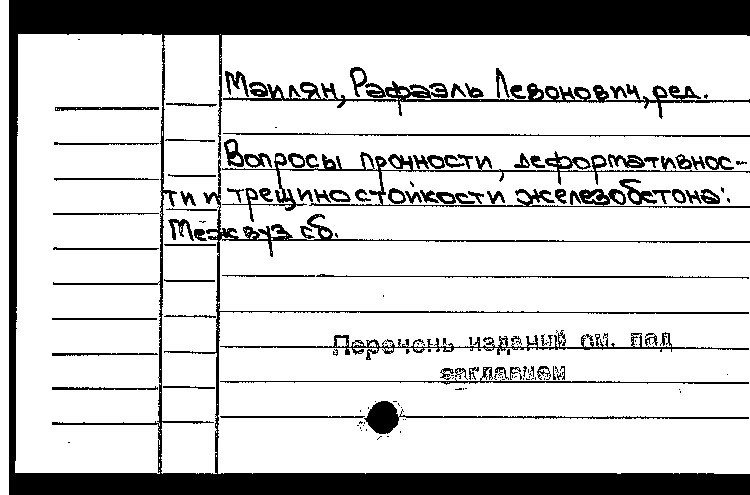 Маилян, Рафаэль Левонович, ред.
Вопросы прочности, деформативнос-
ти и трещиностойкости железобетона:
Межвуз сб.
Перечень изданий см. под
заглавием